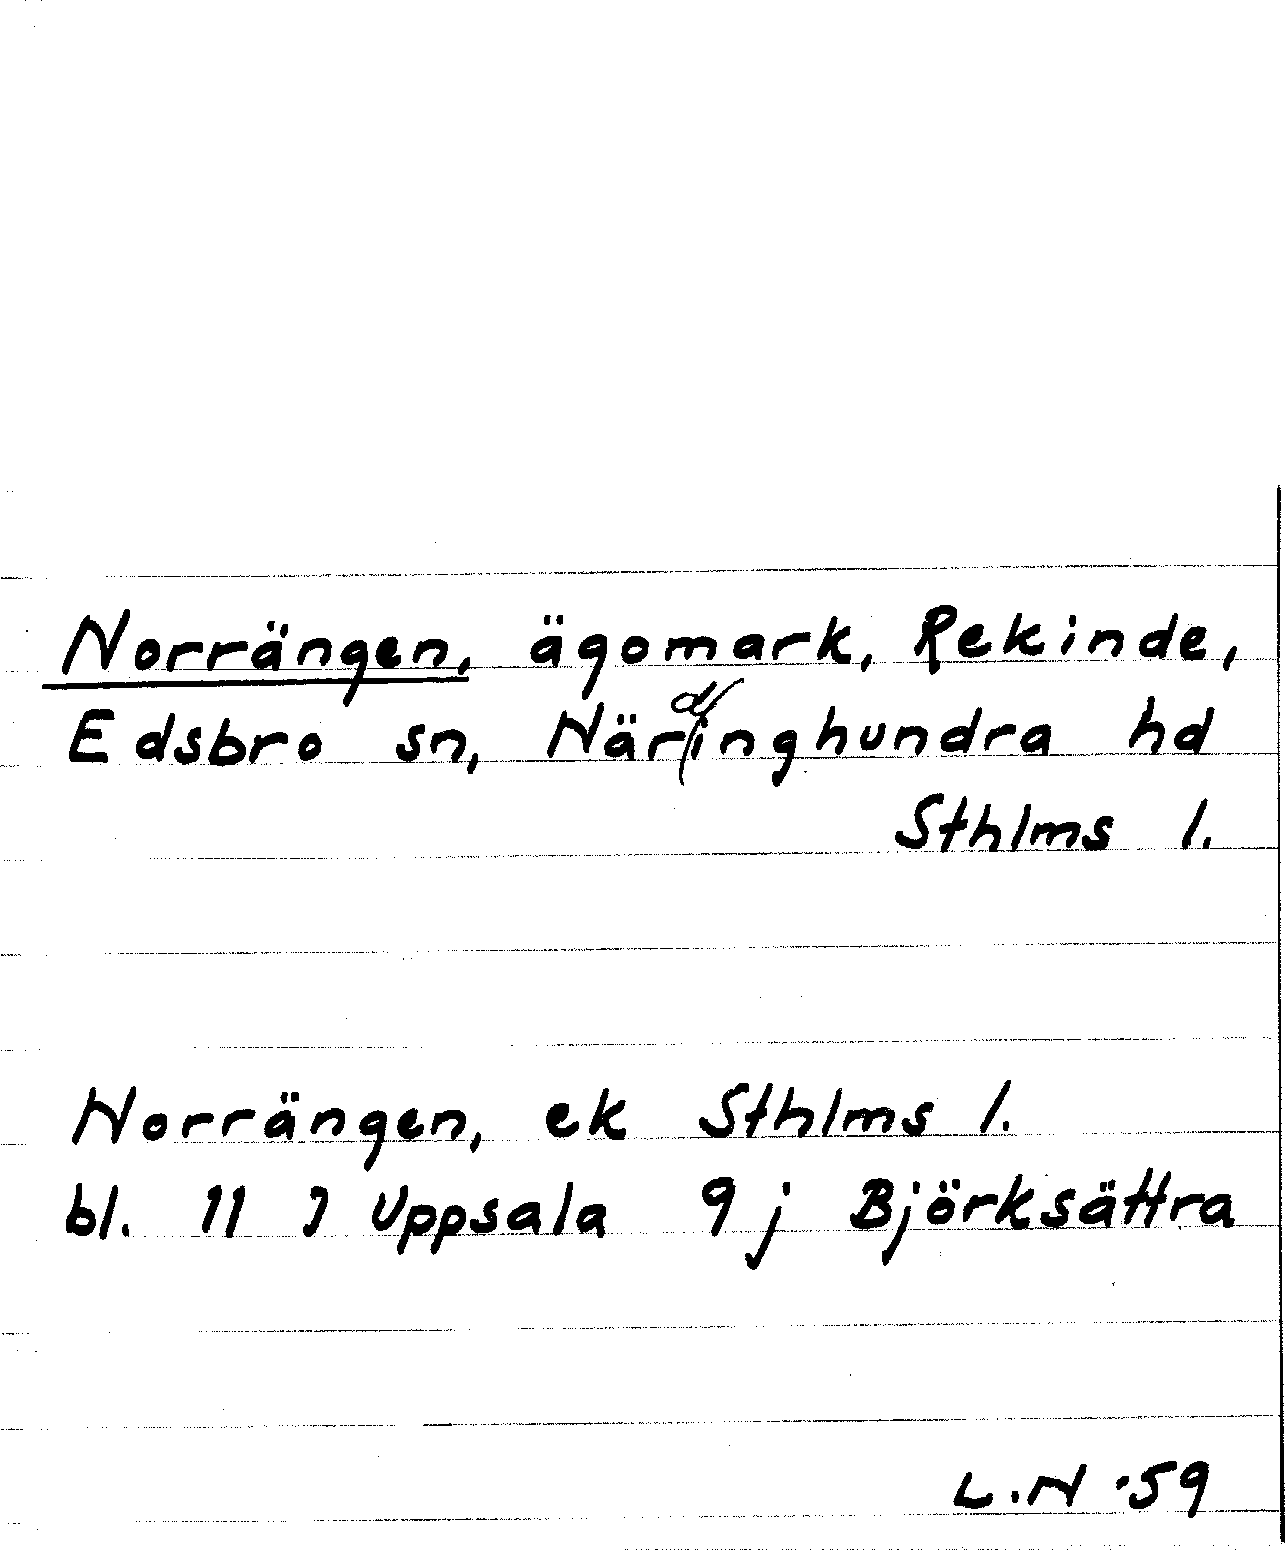 Norrängen, ägomark, Rekinde,
Edsbro sn, Närdinghundra hd
Sthlms l.
Norrängen, ek Sthlms l.
bl. 11 J Uppsala 9 j Björksättra
L.N -59